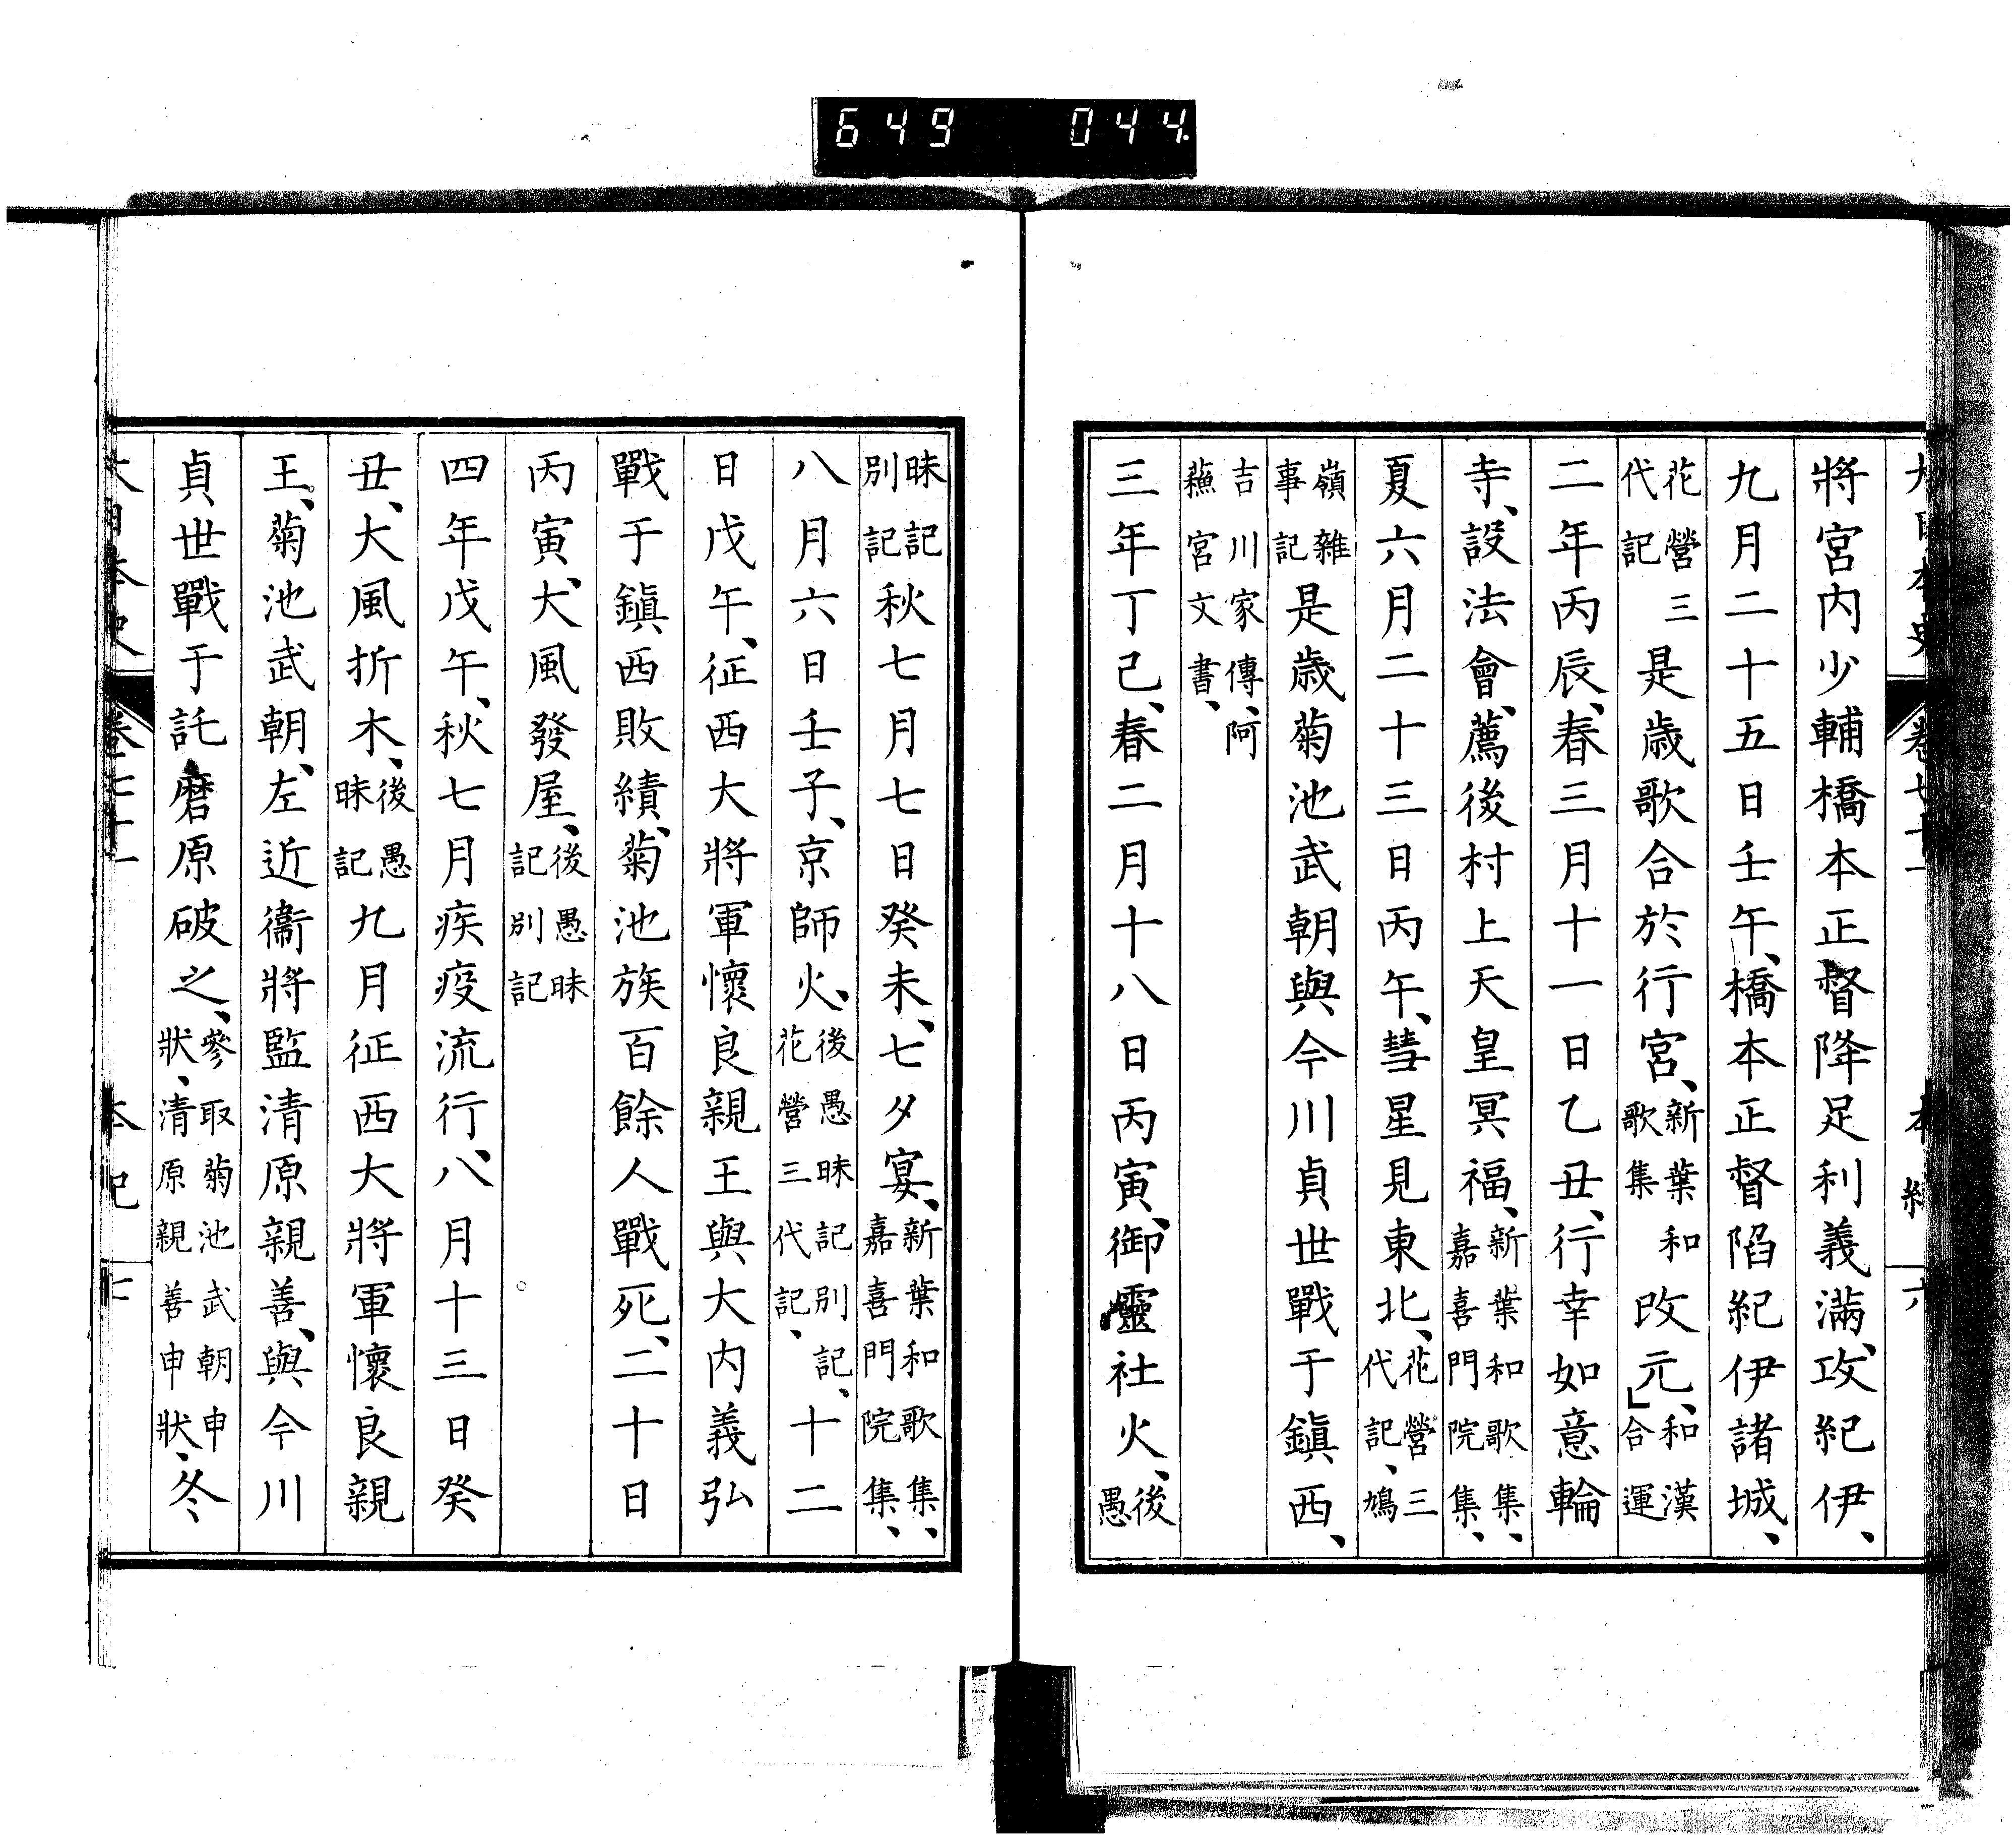 649 044
大日本史 卷七十一 本紀 六
將宮内少輔橋本正督降足利義滿、攻紀伊、
九月二十五日壬午、橋本正督陷紀伊諸城、
花營三代記是歳歌合於行宮、新葉和歌集改元、和漢合運
二年丙辰、春三月十一日乙丑、行幸如意輪
寺、設法會、薦後村上天皇冥福、新葉和歌集、嘉喜門院集、
夏六月二十三日丙午、彗星見東北、花營三代記、鳩
嶺雜事記是歳菊池武朝與今川貞世戰于鎭西、
吉川家傳、阿蘓宮文書、
三年丁己、春二月十八日丙寅、御靈社火、後愚
昧記別記秋七月七日癸未、七夕宴、新葉和歌集、嘉喜門院集、
八月六日壬子、京師火、後愚昧記別記、花營三代記、十二
日戊午、征西大將軍懷良親王與大内義弘
戰于鎭西敗績、菊池族百餘人戰死、二十日
丙寅、大風發屋、後愚昧記別記
四年戊午、秋七月疾疫流行、八月十三日癸
丑、大風折木、後愚昧記九月征西大將軍懷良親
王、菊池武朝、左近衞將監清原親善、與今川
貞世戰于託磨原破之、參取菊池武朝申狀、清原親善申狀、冬
大日本史 卷七十一 本紀 七